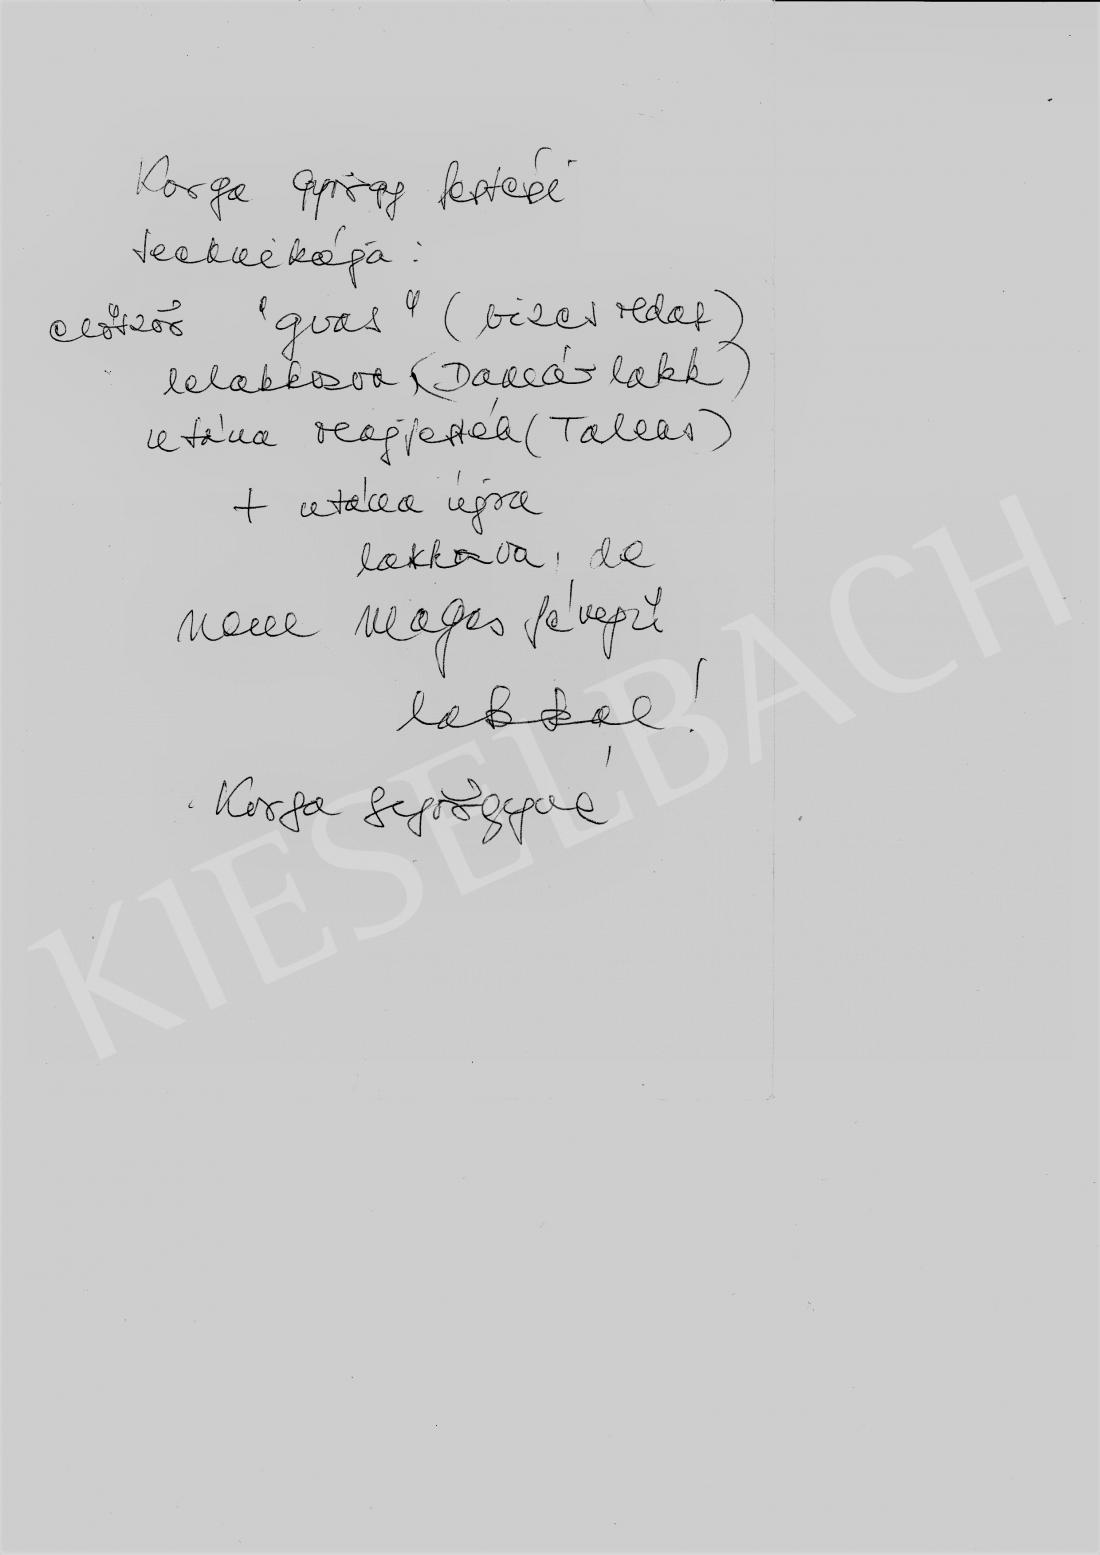 Korga György festési
technikája:
először "guas" (vizes oldat)
lelakkozva (Damár lakk)
utána olajfesték (Talens)
+ utána újra
lakkozva, de
nem magas fényű
lakkal!
Korga Györgyné
KIESELBACH